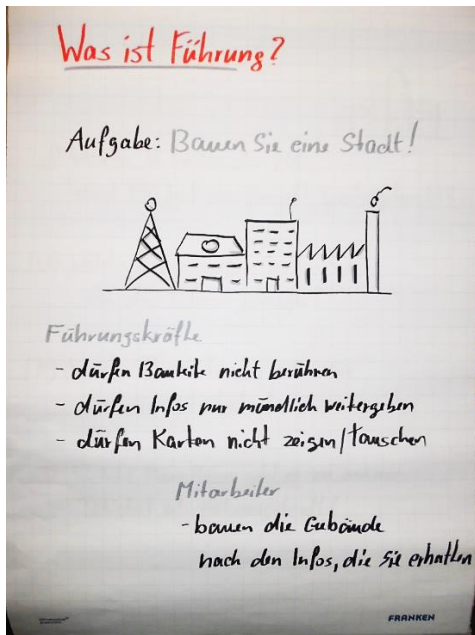 Was ist Führung?
Aufgabe: Bauen Sie eine Stadt!
Führungskräfte
- dürfen Bauteile nicht berühren
- dürfen Infos nur mündlich weitergeben
- dürfen Karten nicht zeigen/tauschen
Mitarbeiter
- bauen die Gebäude
nach den Infos, die sie erhalten
FRANKEN